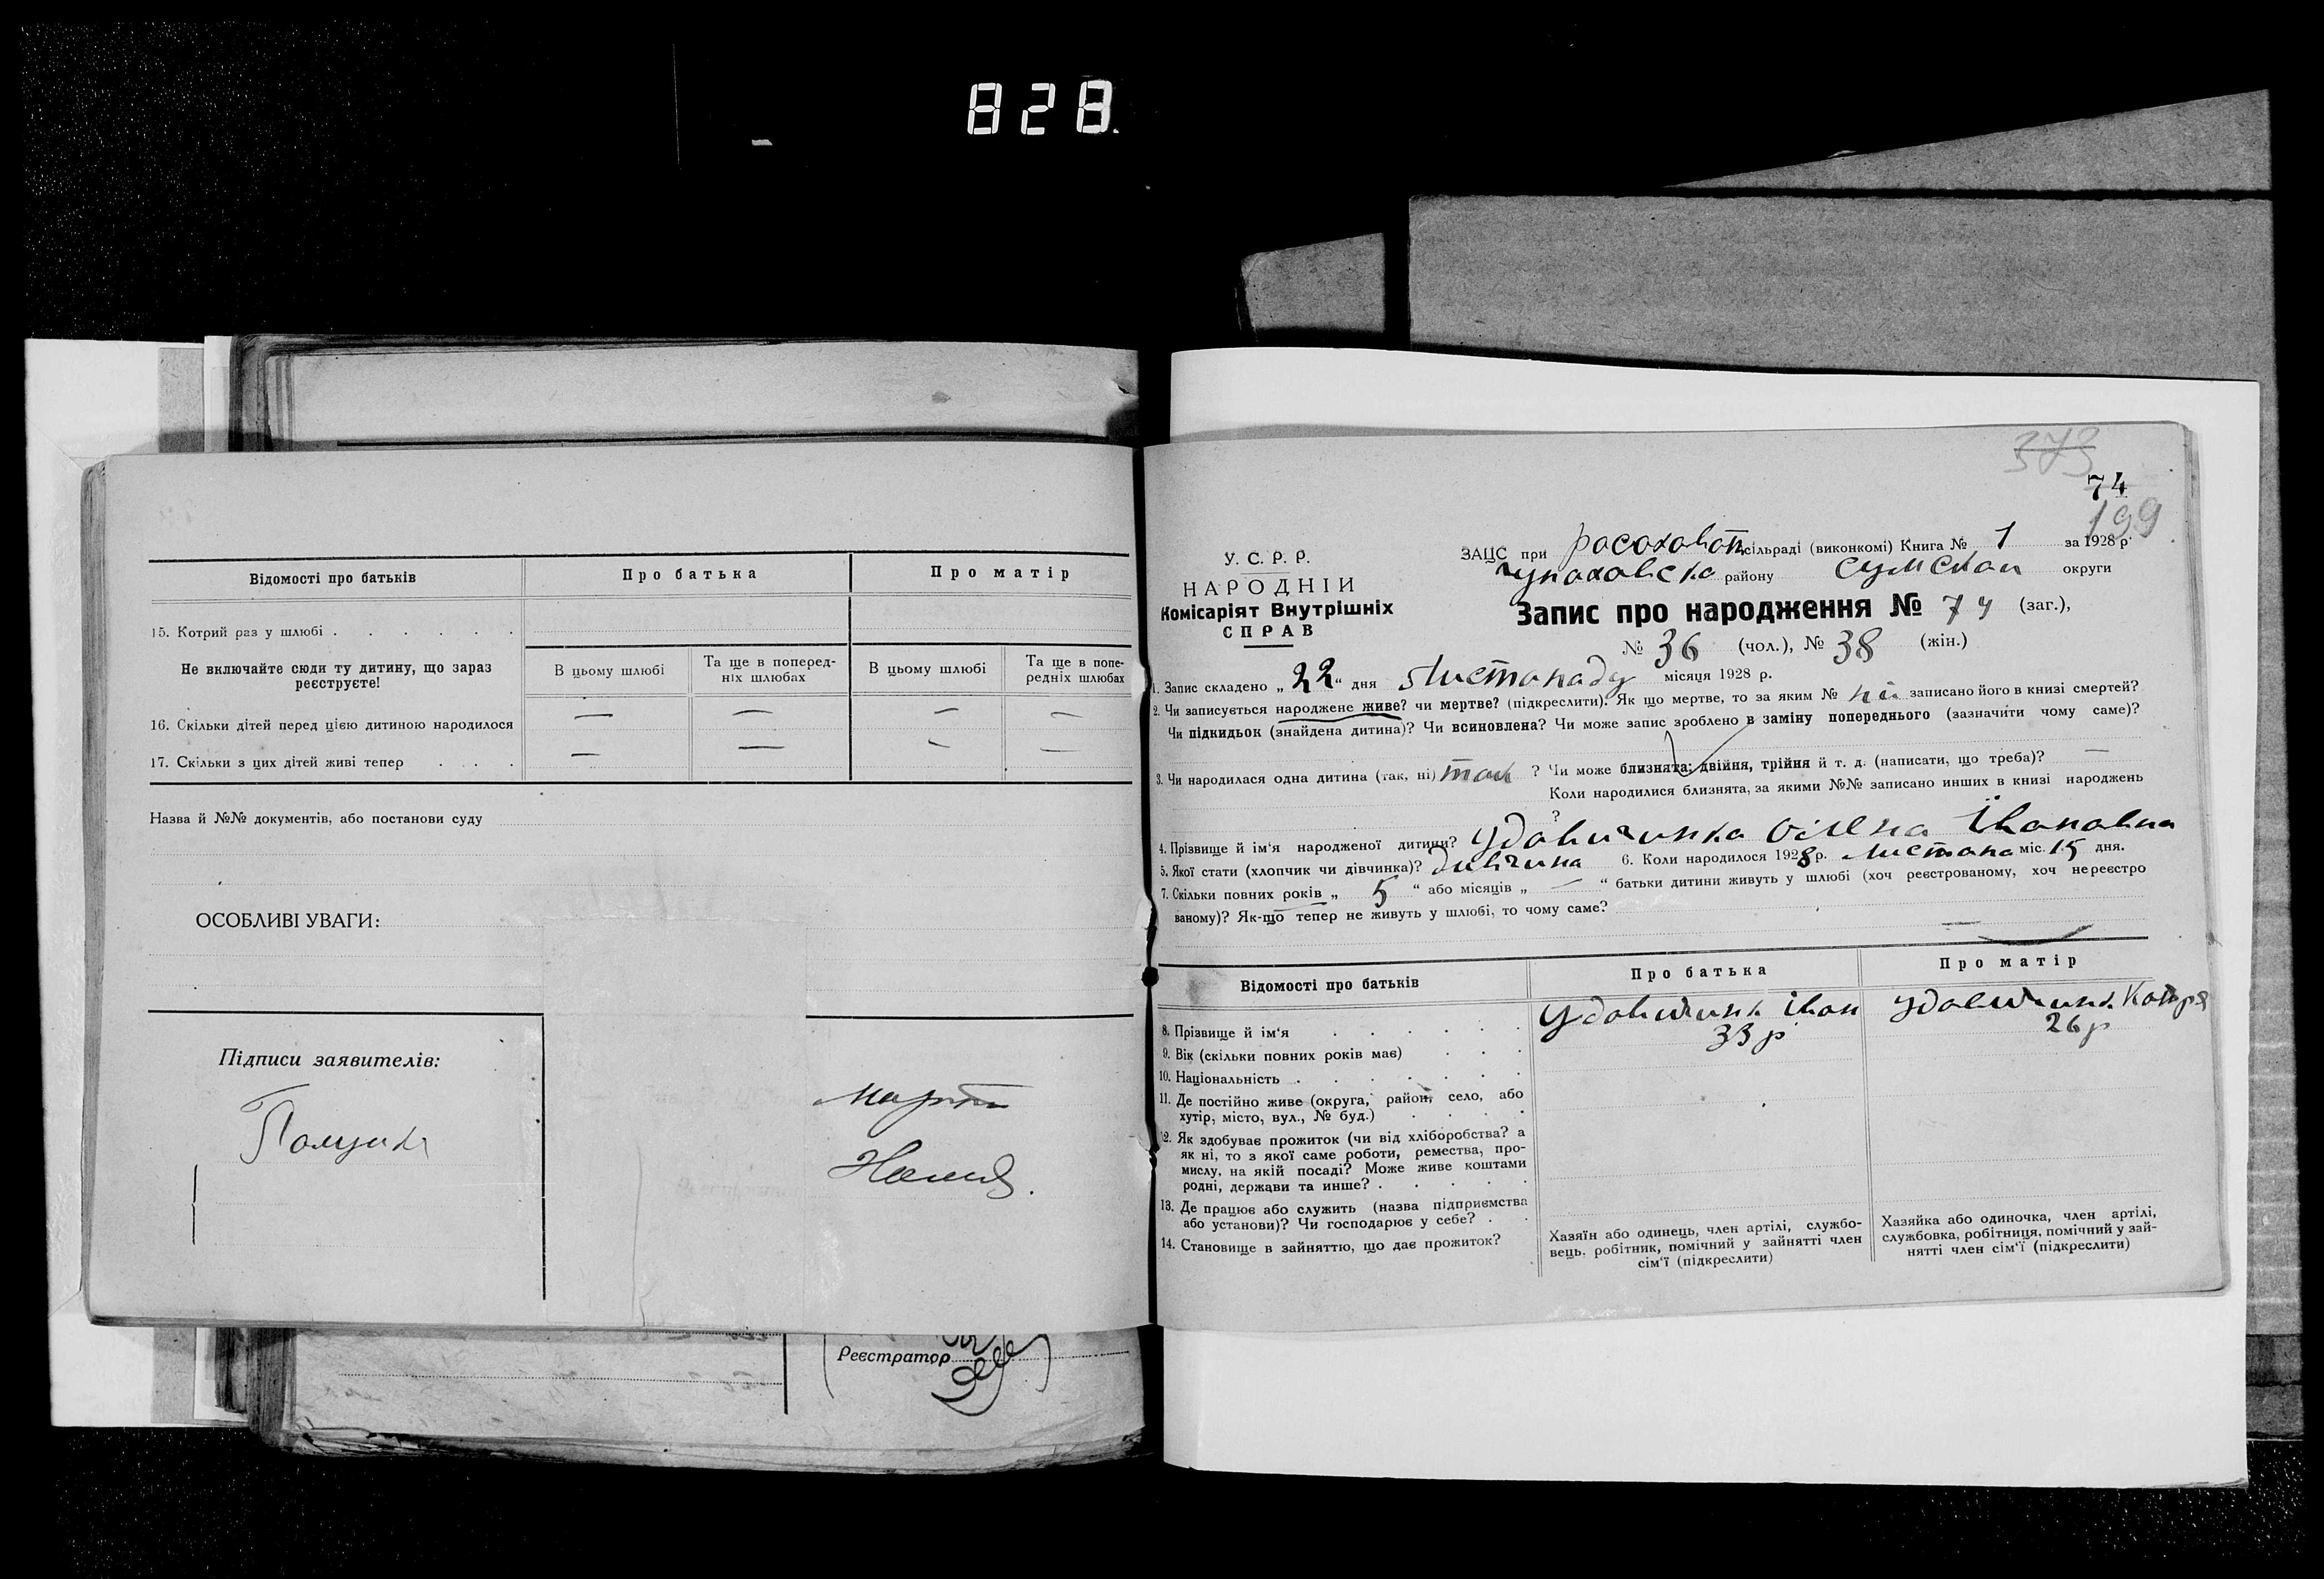 828.
Відомості про батьків
Про батька
Про матір
15. Котрий раз у шлюбі
Не включайте сюди ту дитину, що зараз реєструєте!
В цьому шлюбі
Та ще в поперед-
ніх шлюбах
В цьому шлюбі
Та ще в попе-
редніх шлюбах
16. Скільки дітей перед цією дитиною народилося — — — —
17. Скільки з цих дітей живі тепер — — — —
Назва й №№ документів, або постанови суду
ОСОБЛИВІ УВАГИ:
Підписи заявителів:
Реєстратор
373
74
199
У. С. Р. Р.
НАРОДНІЙ
Комісаріят Внутрішніх
СПРАВ
ЗАЦС при сільраді (виконкомі) Книга № 1 за 1928 р.
району округи
Запис про народження № 74 (заг.),
№ 36 (чол.), № 38 (жін.)
1. Запис складено „22“ дня Листопаду місяця 1928 р.
2. Чи записується народжене живе? чи мертве? (підкреслити). Як що мертве, то за яким № записано його в книзі смертей?
Чи підкидьок (знайдена дитина)? Чи всиновлена? Чи може запис зроблено в заміну попереднього (зазначити чому саме)?
3. Чи народилася одна дитина (так, ні) так ? Чи може близнята: двійня, трійня й т. д. (написати, що треба)? —
Коли народилися близнята, за якими №№ записано инших в книзі народжень
?
4. Прізвище й ім‘я народженої дитини? Івановна
5. Якої стати (хлопчик чи дівчинка)? 6. Коли народилося 1928 р. Листопа міс. 15 дня.
7. Скільки повних років „ 5 “ або місяців „ — “ батьки дитини живуть у шлюбі (хоч реєстрованому, хоч нереєстро
ваному)? Як-що тепер не живуть у шлюбі, то чому саме?
Відомості про батьків
Про батька
Про матір
8. Прізвище й ім‘я Іван
9. Вік (скільки повних років має) 33 р 26 р
10. Національність
11. Де постійно живе (округа, район, село, або
хутір, місто, вул., № буд.)
12. Як здобуває прожиток (чи від хліборобства? а
як ні, то з якої саме роботи, ремества, про-
мислу, на якій посаді? Може живе коштами
родні, держави та инше?
13. Де працює або служить (назва підприємства
або установи)? Чи господарює у себе?
14. Становище в зайняттю, що дає прожиток?
Хазяїн або одинець, член артілі, службо-
вець, робітник, помічний у зайнятті член
сім‘ї (підкреслити)
Хазяйка або одиночка, член артілі,
службовка, робітниця, помічний у зай-
нятті член сім‘ї (підкреслити)